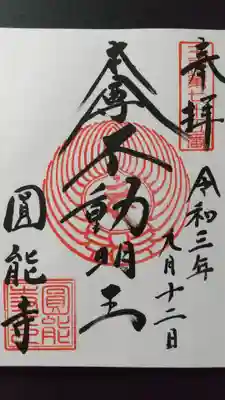 奉拝
令和三年
九月十二日
本尊
不動明王
圓能寺
圓能寺印